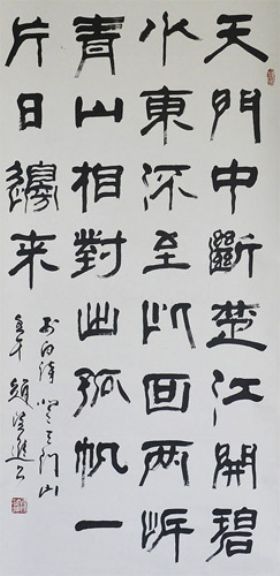 天門中斷楚江開碧
水東流至此回兩岸
青山相對出孤帆一
片日邊来
李白诗望天门山